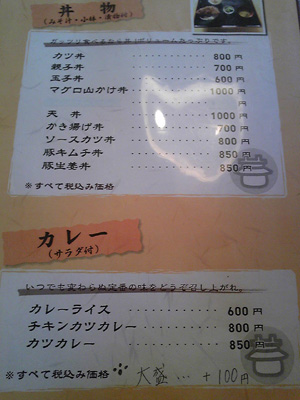 丼物
(みそ汁・小鉢・漬物付)
ガッツリ食べるなら丼!ボリュームたっぷりです。
カツ丼 ………… 800円
親子丼 ………… 700円
玉子丼 ………… 600円
マグロ山かけ丼 ………… 1000円
………… 円
天丼 ………… 1000円
かき揚げ丼 ………… 700円
ソースカツ丼 ………… 800円
豚キムチ丼 ………… 850円
豚生姜丼 ………… 850円
※すべて税込み価格
カレー
(サラダ付)
いつでも変わらぬ定番の味をどうぞ召し上がれ。
カレーライス ………… 600円
チキンカツカレー ………… 800円
カツカレー ………… 850円
※すべて税込み価格
大盛 … +100円